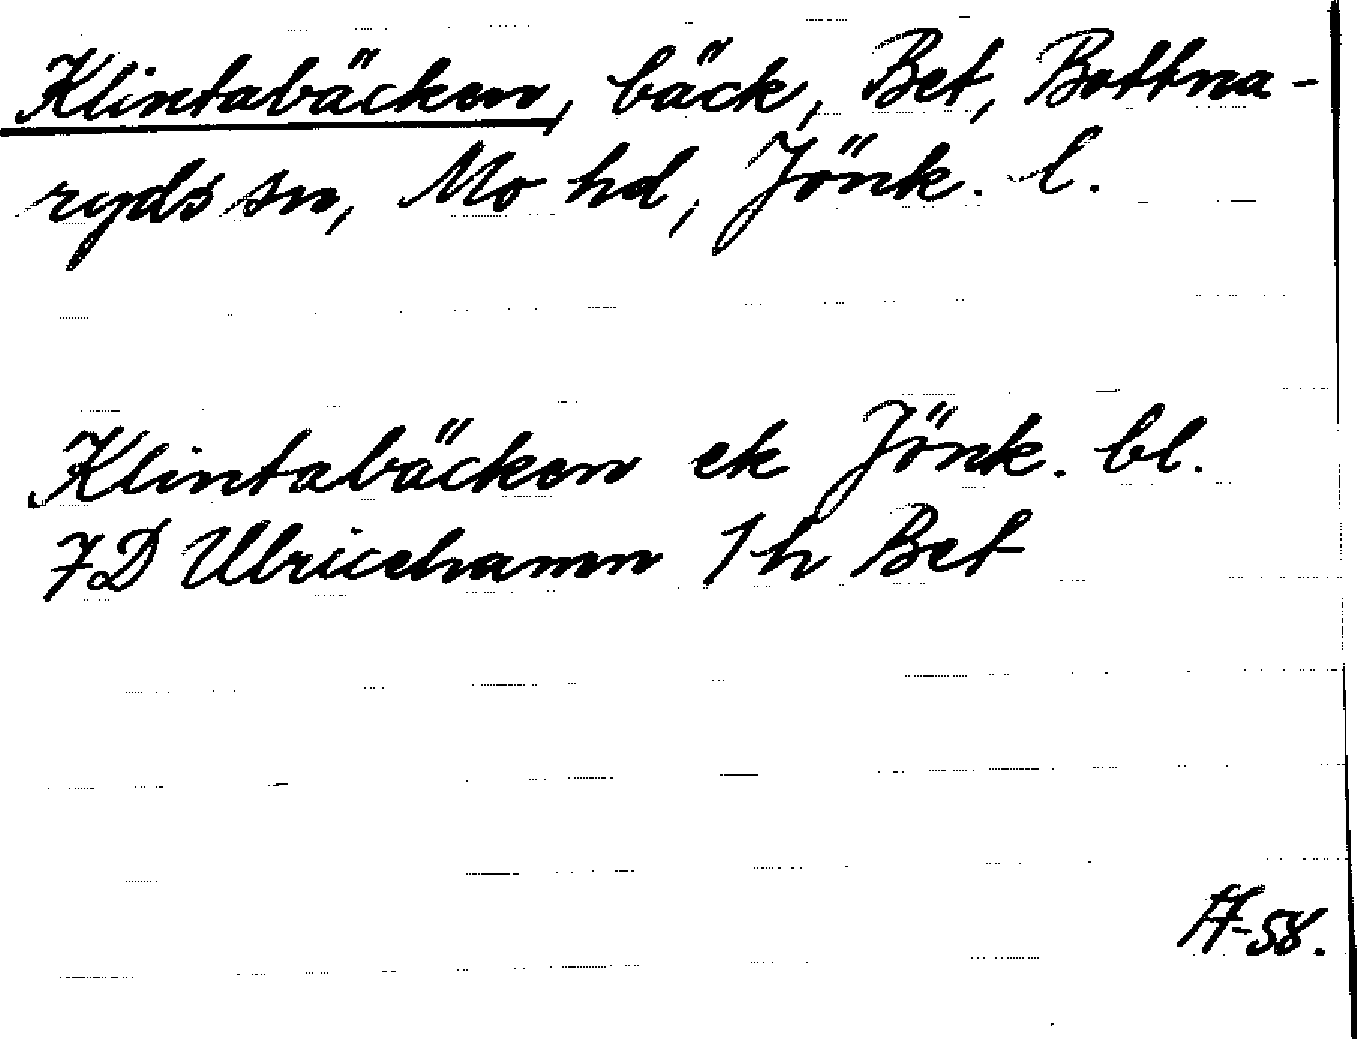 Klintabäcken, bäck, Bet, Bottna-
ryds sn, Mo hd, Jönk. l.
Klintabäcken ek Jönk. bl.
7D Ulricehamn 1h Bet
-58.